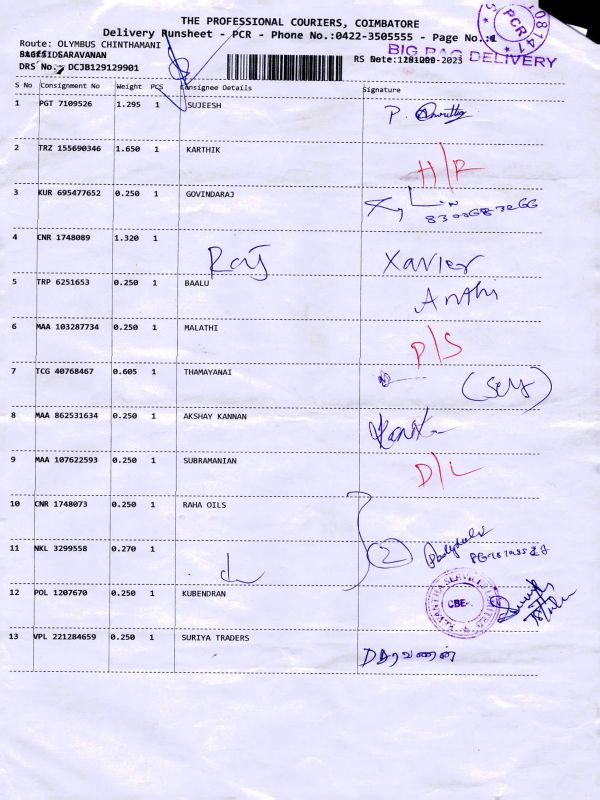 THE PROFESSIONAL COURIERS, COIMBATORE
Delivery Runsheet - PCR - Phone No.:0422-3505555 - Page No.:1
Route: OLYMBUS CHINTHAMANI
BIG BAG DELIVERY
DRS No.: DCJB129129901
S No Consignment No Weight PCS Consignee Details Signature
1 PGT 7109526 1.295 1 SUJEESH P.
2 TRZ 155690346 1.650 1 KARTHIK H/R
3 KUR 695477652 0.250 1 GOVINDARAJ
4 CNR 1748089 1.320 1 Raj Xavier
5 TRP 6251653 0.250 1 BAALU
6 MAA 103287734 0.250 1 MALATHI P/S
7 TCG 40768467 0.605 1 THAMAYANAI
8 MAA 862531634 0.250 1 AKSHAY KANNAN
9 MAA 107622593 0.250 1 SUBRAMANIAN D/L
10 CNR 1748073 0.250 1 RAHA OILS
11 NKL 3299558 0.270 1 2
12 POL 1207670 0.250 1 KUBENDRAN CBE
13 VPL 221284659 0.250 1 SURIYA TRADERS